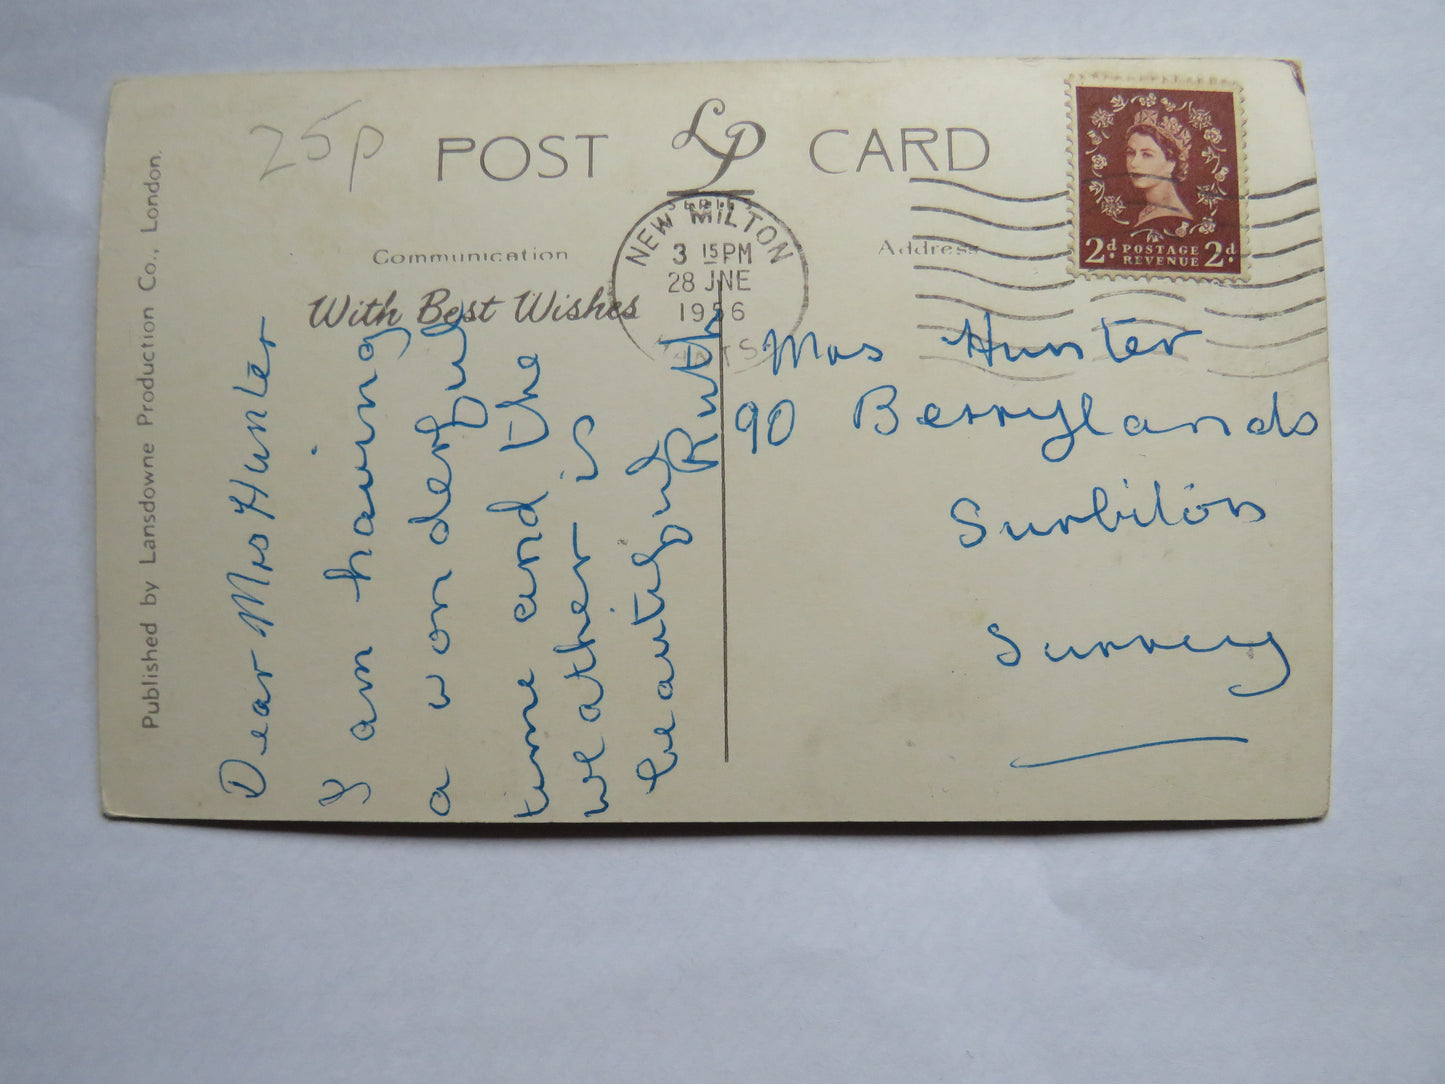 25p
POST LP CARD
SERIES
NEW MILTON
3 15 PM
28 JNE
1956
HANTS
2d POSTAGE REVENUE 2d
Communication
Address
With Best Wishes
Published by Lansdowne Production Co., London.
Dear Mrs Hunter
I am having
a wonderful
time and the
weather is
beautiful
Ruth
Mrs Hunter
90 Berrylands
Surbiton
Surrey